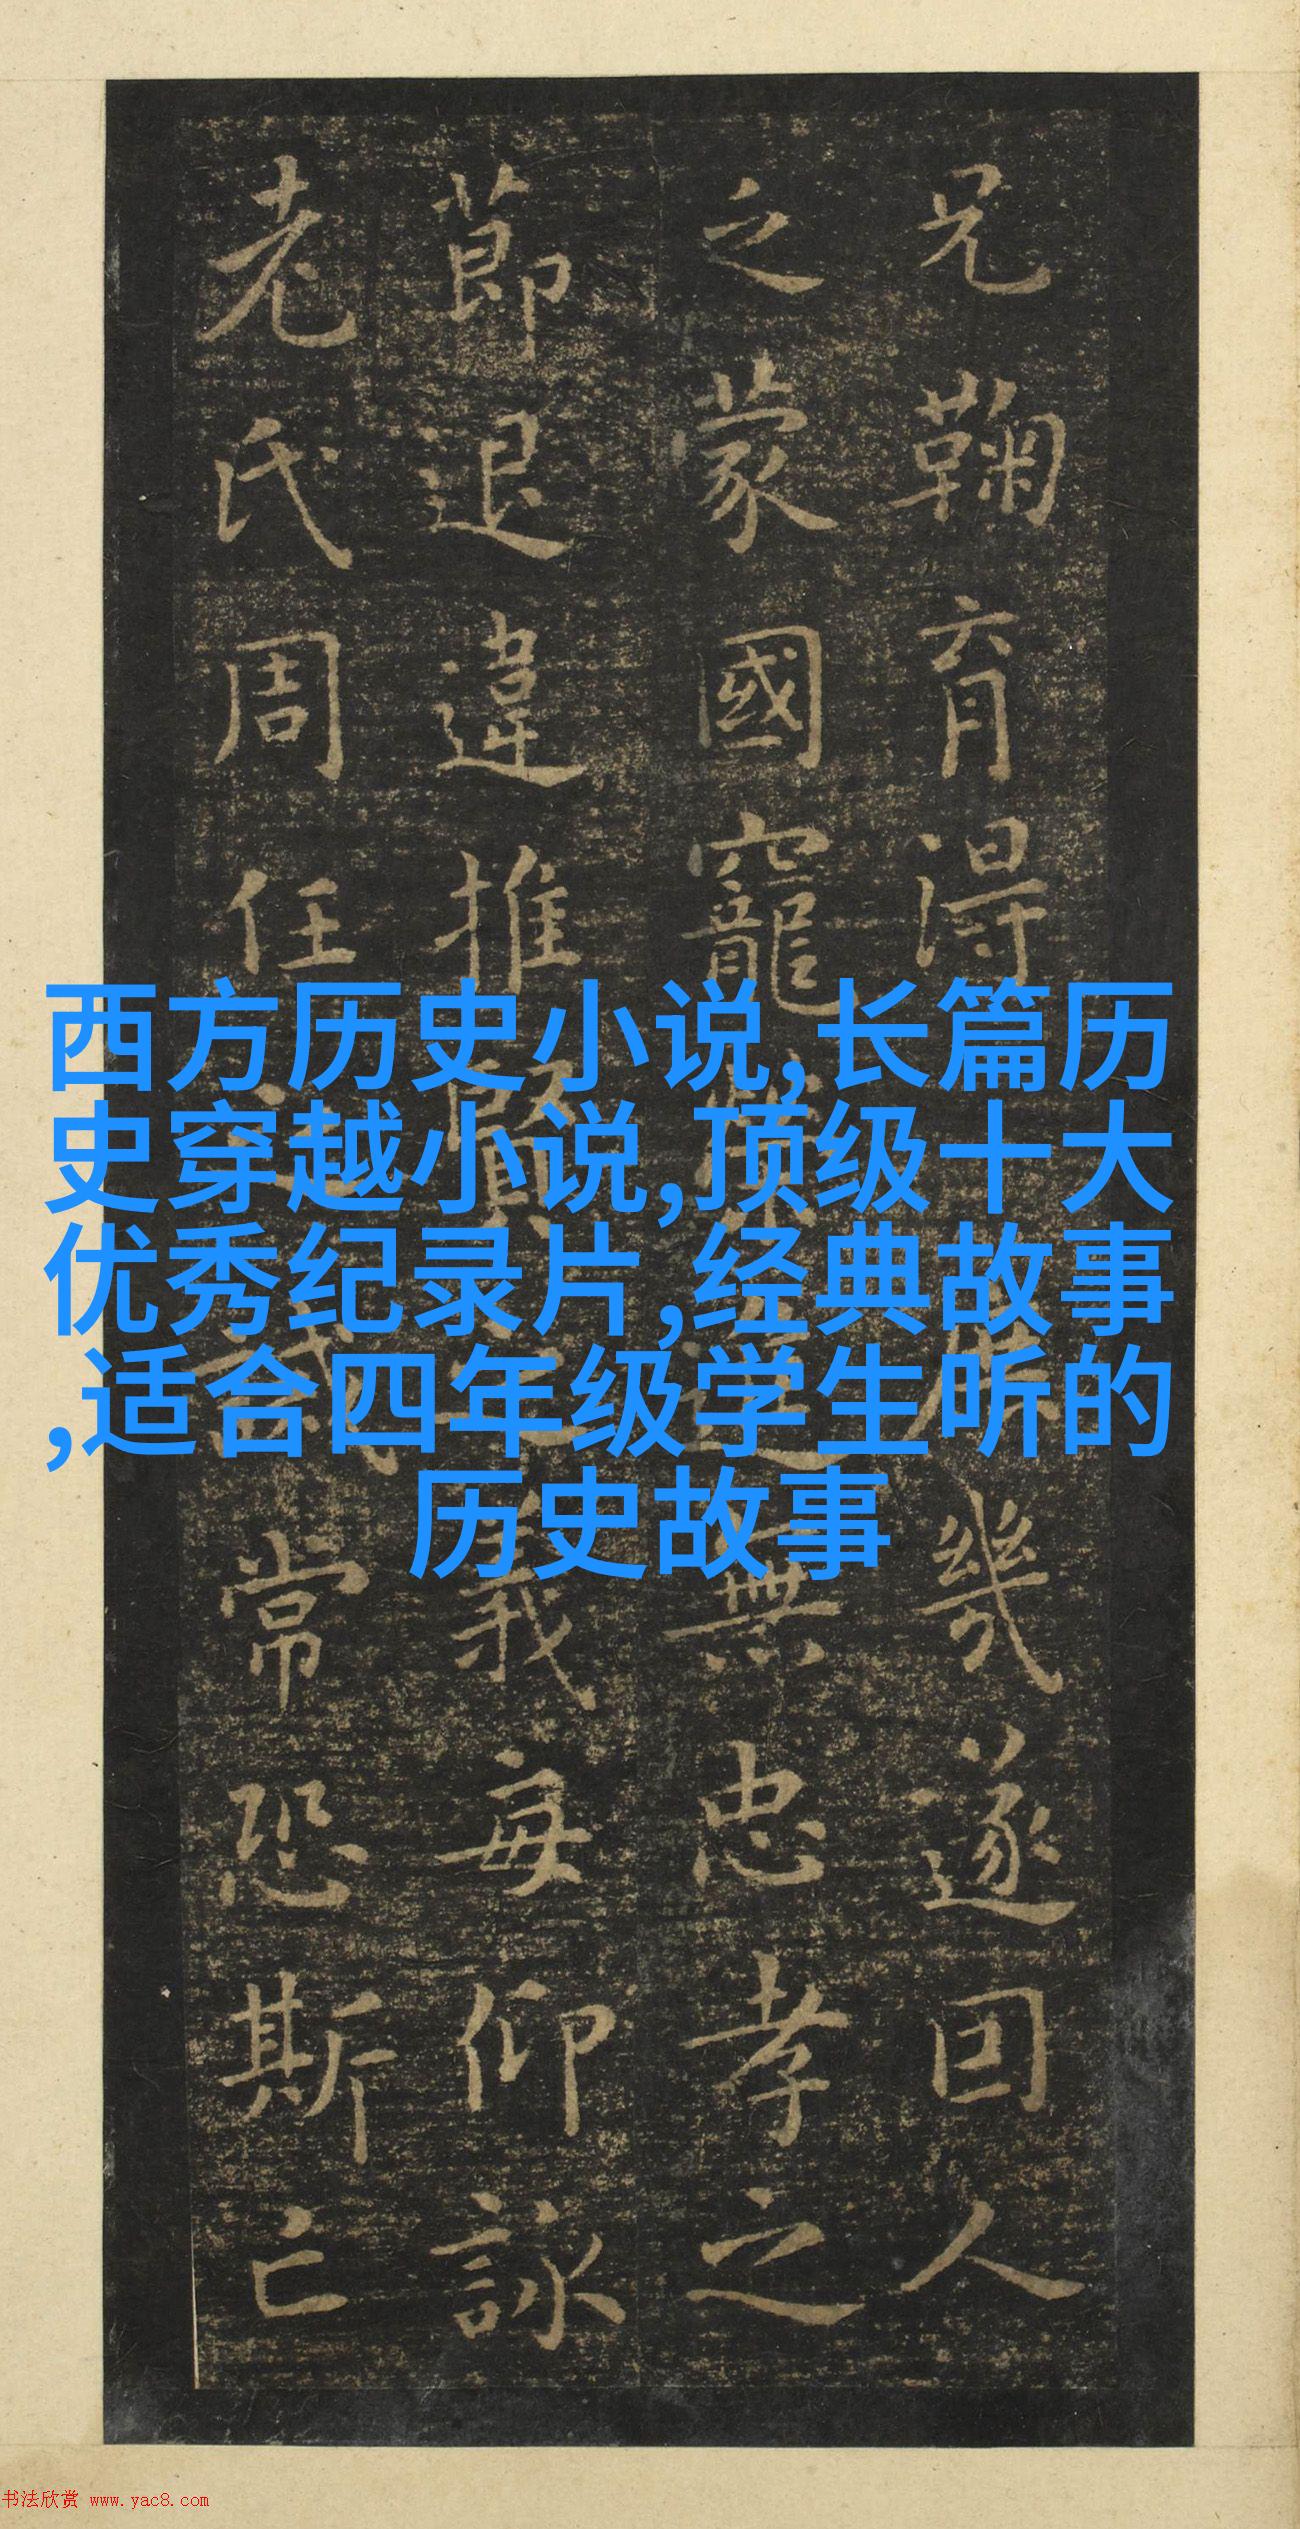 兄鞠育得幾遂因人
之蒙國寵榮進無忠孝之
莭退違推賢之義每仰詠
老氏周任之誡常恐斯亡
西方历史小说,长篇历
史穿越小说,顶级十大
优秀纪录片,经典故事
,适合四年级学生听的
历史故事
书法欣赏 www.yac8.com